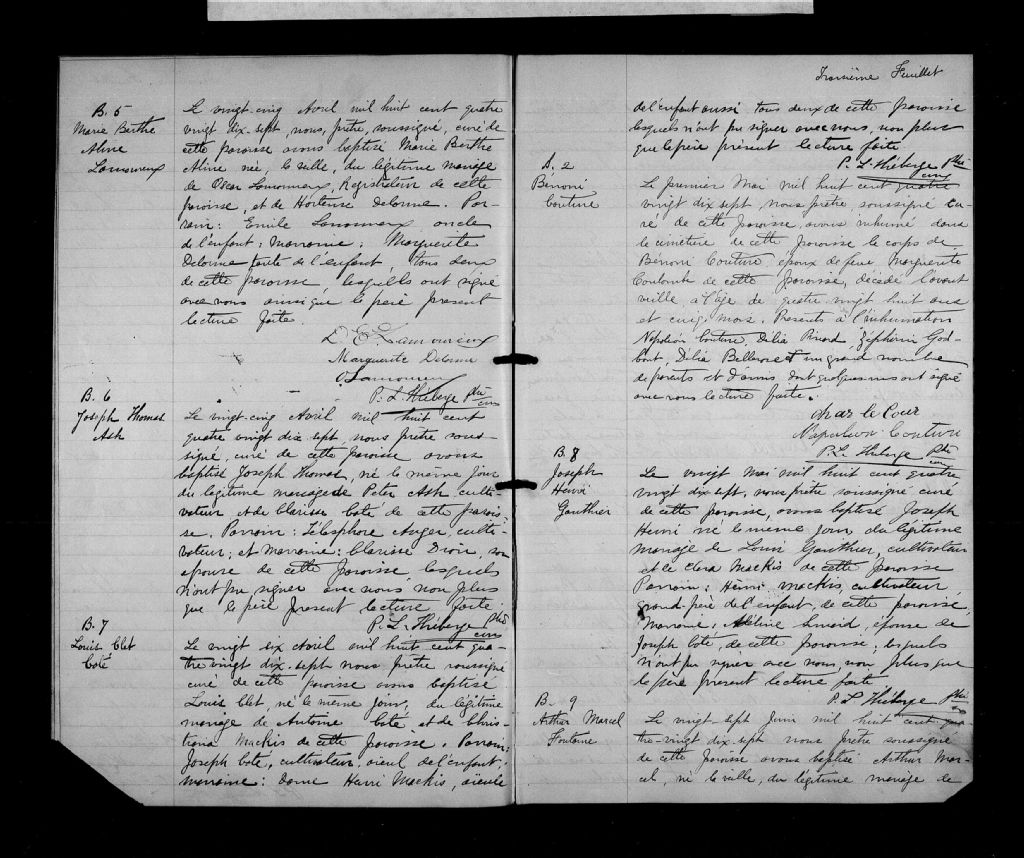 B. 5
Marie Berthe
Aline
Lamoureux
Le vingt-cinq Avril mil huit cent quatre
vingt dix-sept, nous, prêtre, soussigné, curé de
cette paroisse avons baptisé Marie Berthe
Aline née, la veille, du légitime mariage
de Oscar Lamoureux, Registrateur de cette
paroisse, et de Hortense Delorme. Par-
rain: Emile Lamoureux oncle
de l'enfant; Marraine: Marguerite
Delorme tante de l'enfant, tous deux
de cette paroisse, lesquels ont signé
avec nous ainsi que le père présent
lecture faite.
L. E. Lamoureux
Marguerite Delorme
O Lamoureux
P. L. Théberge Ptre
curé
B. 6
Joseph Thomas
Ash
Le vingt-cinq Avril mil huit cent
quatre vingt dix sept, nous prêtre sous-
signé, curé de cette paroisse avons
baptisé Joseph Thomas, né le même jour
du légitime mariage de Peter Ash, culti-
vateur et de Clarisse Coté de cette parois-
se. Parrain: Télesphore Auger, culti-
vateur; et Marraine: Clarisse Dion, son
épouse de cette paroisse, lesquels
n'ont pu signer avec nous non plus
que le père présent lecture faite.
P. L. Théberge Ptre
curé
B. 7
Louis Clet
Coté
Le vingt six Avril mil huit cent qua-
tre vingt dix-sept nous prêtre soussigné
curé de cette paroisse avons baptisé
Louis Clet, né le même jour, du légitime
mariage de Antoine Coté et de Chris-
tiana Mackis de cette paroisse. Parrain;
Joseph Coté, cultivateur, aïeul de l'enfant;
marraine: Dame Henri Mackis, aïeule
Troisième Feuillet
de l'enfant aussi tous deux de cette paroisse
lesquels n'ont pu signer avec nous, non plus
que le père présent lecture faite
P. L. Théberge Ptre
curé
S. 2
Bénoni
Couture
Le premier Mai mil huit cent quatre
vingt dix sept, nous prêtre soussigné cu-
ré de cette paroisse, avons inhumé dans
le cimetière de cette paroisse le corps de
Bénoni Couture, époux de feue Marguerite
de cette paroisse, décédé l'avant
veille à l'âge de quatre vingt huit ans
et cinq mois. Présents à l'inhumation
Napoléon Couture, Délia Picard, Zéphirin God-
bout, Délia Bellerose et un grand nombre
de parents et d'amis dont quelques-uns ont signé
avec nous lecture faite.
Napoléon Couture
P. L. Théberge Ptre
curé
B. 8
Joseph
Henri
Gauthier
Le vingt Mai mil huit cent quatre
vingt dix-sept, nous prêtre soussigné curé
de cette paroisse, avons baptisé Joseph
Henri né le même jour du légitime
mariage de Louis Gauthier, cultivateur
et de Clara Mackis de cette paroisse
Parrain: Henri Mackis, cultivateur,
grand-père de l'enfant, de cette paroisse,
Marraine: Adeline, épouse de
Joseph Coté, de cette paroisse; lesquels
n'ont pu signer avec nous, non plus que
le père présent lecture faite
P. L. Théberge Ptre
B. 9
Arthur Marcel
Fontaine
Le vingt sept Juin mil huit cent qua-
tre-vingt dix-sept nous prêtre soussigné
de cette paroisse avons baptisé Arthur Mar-
cel, né la veille, du légitime mariage de